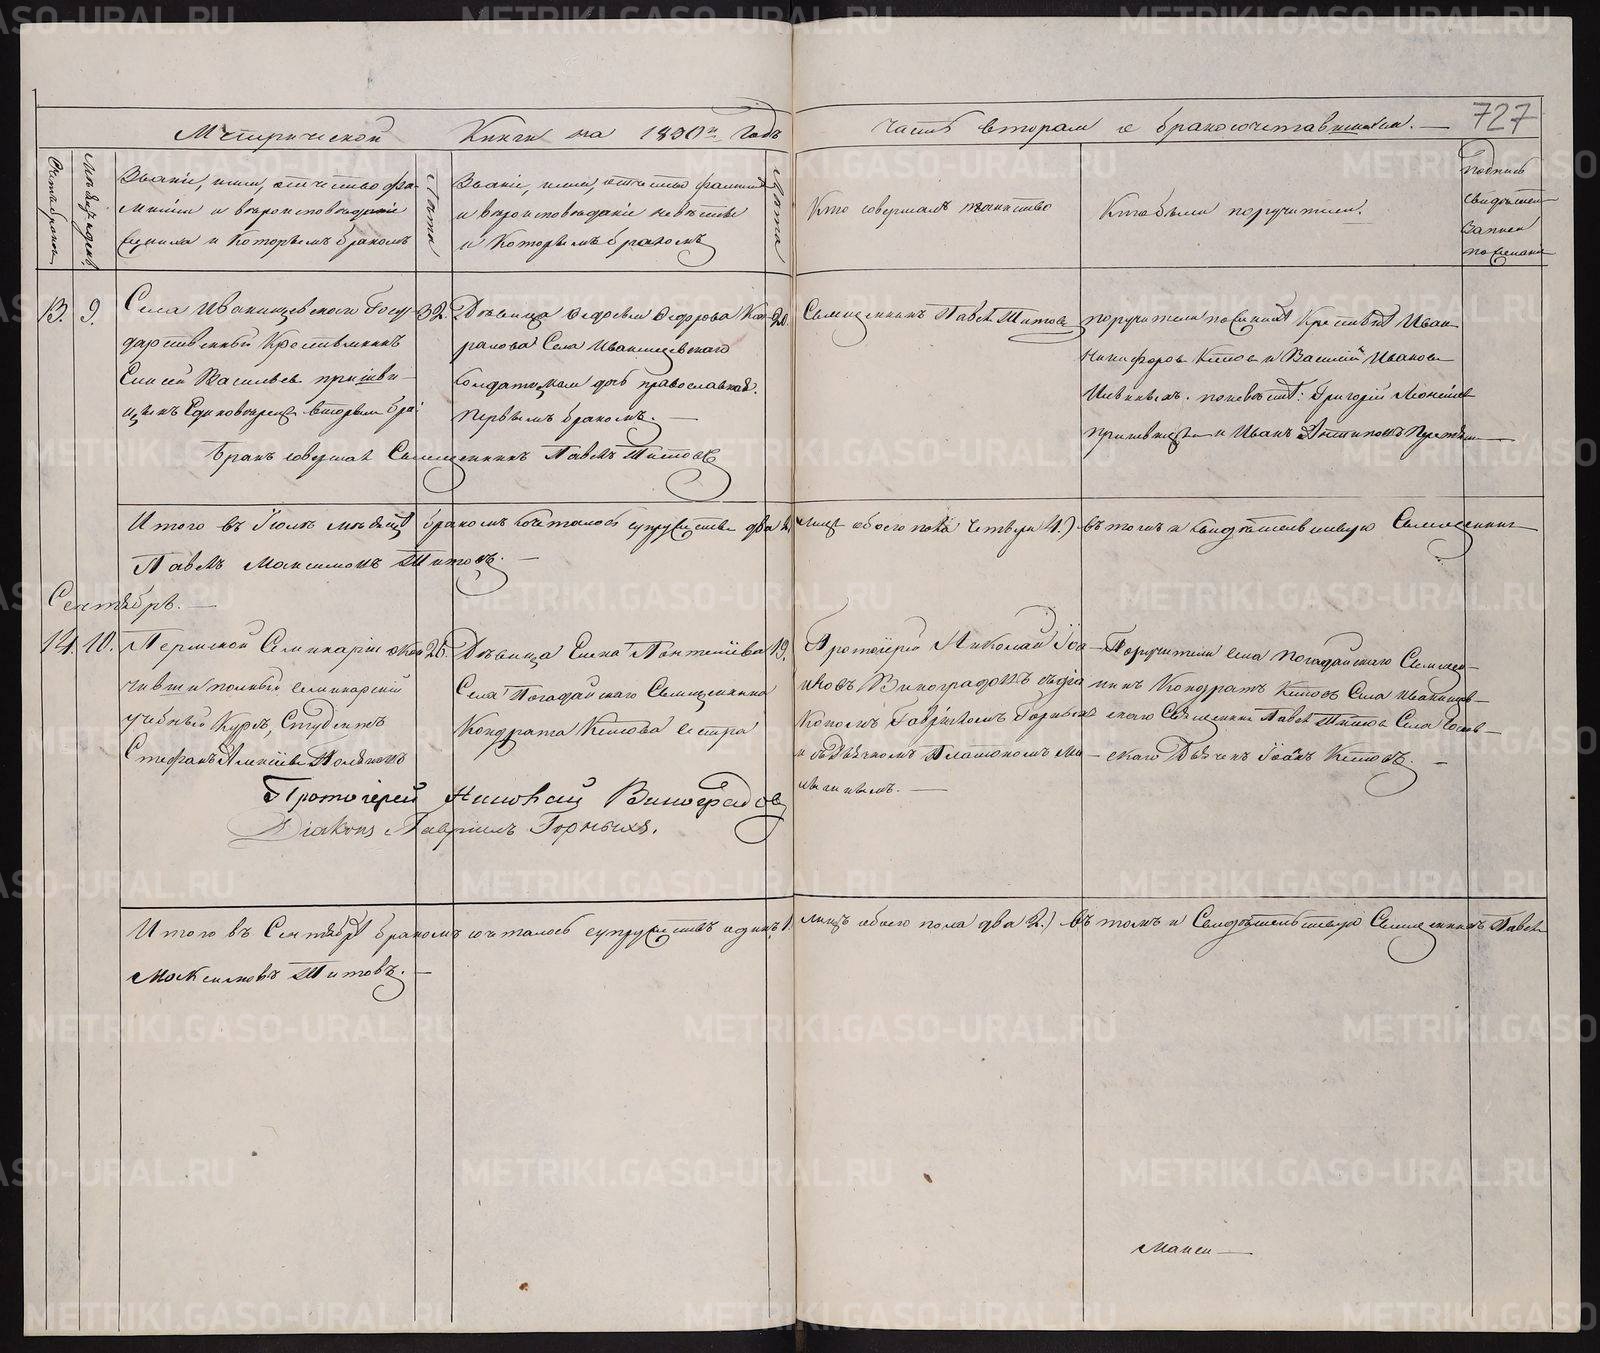 727
Метрической Книги на 1830й Годъ
часть вторая о бракосочетавшихся.
Счетъ браковъ
Мѣсяцъ и день
Званіе, имя, отчество фа-
милія и вѣроисповѣданіе
жениха и Которымъ бракомъ
Лѣта
Званіе, имя, отчество фамилія
и вѣроисповѣданіе невѣсты
и Которымъ бракомъ
Лѣта
Кто совершалъ таинство
Кто были поручители.
Подпись
свидѣтелей
записи
по желанію
13. 9.
Села Иванищевскаго Госу-
дарственный Крестьянинъ
Елисей Васильевъ
Единовѣрецъ вторымъ бра:
32.
Дѣвица Федосья Федорова
Села Иванищевскаго
Солдатская дочь православная.
первымъ бракомъ.
20.
Священникъ Павелъ Титовъ
поручители по женихѣ Крестьяне Иванъ
Никифоровъ Кетовъ и Василій Ивановъ
по невѣстѣ: Григорій
и Иванъ Антиповъ
Бракъ совершалъ Священникъ Павелъ Титовъ
Итого въ Іюлѣ мѣсяцѣ бракомъ сочталось супружествъ два 2. лицъ обоего пола четыре 4.) въ томъ и свидѣтельствую Священникъ
Павелъ Максимовъ Титовъ.
Сентябрь.
14. 10.
Пермской Семинаріи окон-
чившій полный семинарскій
учебный Курсъ, Студентъ
Стефанъ Алексіевъ Поляковъ
26.
Дѣвица Елена Пантеліева
Села Погадайскаго Священника
Кондрата Кетова сестра
19.
Протоіерей Николай Іоа-
нновъ Виноградовъ съ діа
кономъ Гавріиломъ Горныхъ
и дьячкомъ Платономъ Ми-
Поручители села Погадайскаго Священ-
никъ Кондратъ Кетовъ Села Иванищев-
скаго Священникъ Павелъ Титовъ Села
скаго Дьячекъ Іоанъ Кетовъ.
Протоіерей Николай Виноградовъ
Діаконъ Гавріилъ Горныхъ.
Итого въ Сентябрѣ бракомъ сочталось супружествъ одинъ 1. лицъ обоего пола два 2.) въ томъ и Свидѣтельствую Священникъ Павелъ
Максимовъ Титовъ.